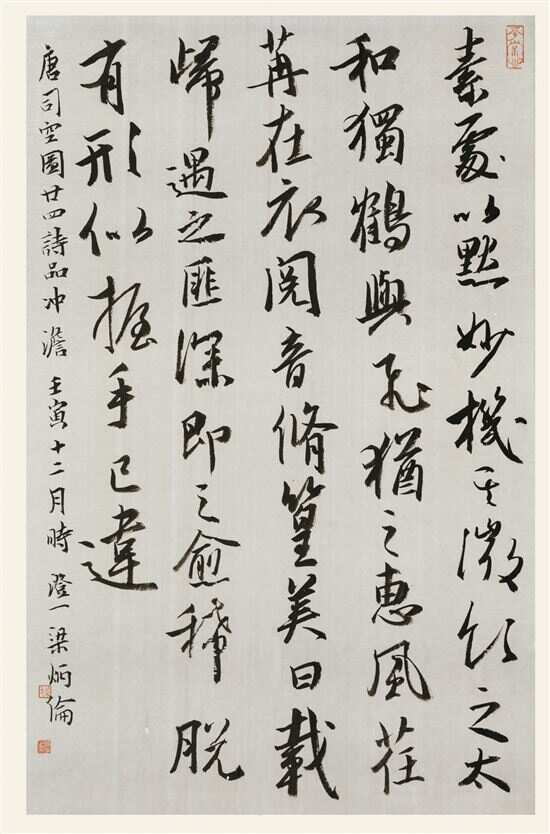 素處以默妙機其微飲之太
和獨鶴與飛猶之惠風荏
苒在衣閱音脩篁美曰載
歸遇之匪深即之愈稀脫
有形似握手已違
唐司空圖廿四詩品冲澹 壬寅十二月時 澄一梁炳倫